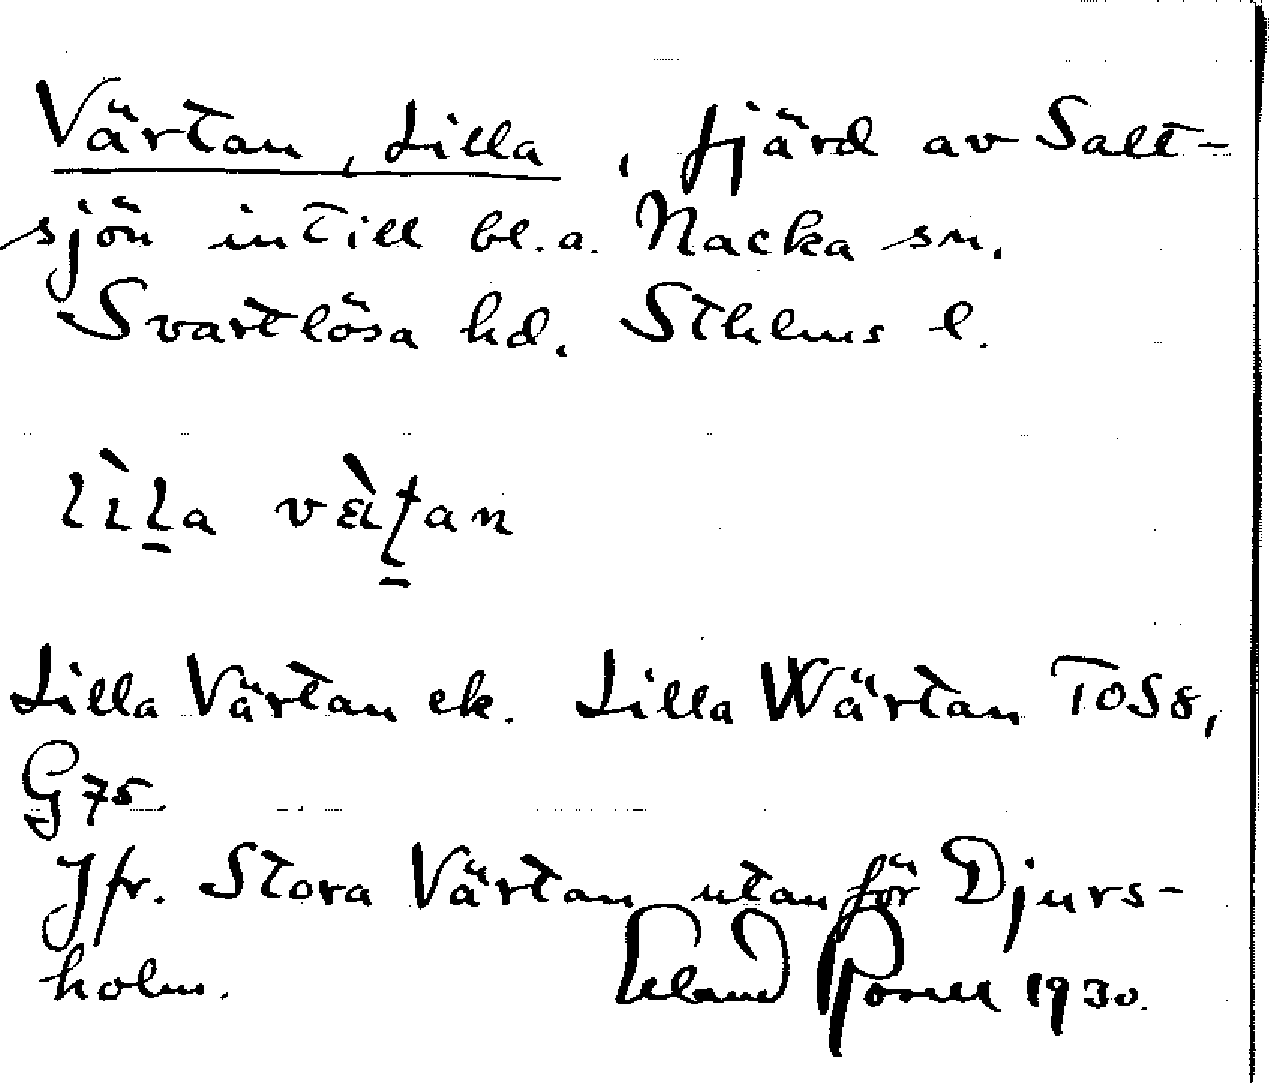 Värtan, Lilla, fjärd av Salt-
sjön intill bl.a. Nacka sn.
Svartlösa hd. Sthlms l.
Lilla Värtan ek. Lilla Wärtan TOS8,
G75
Jfr. Stora Värtan utanför Djurs-
holm. 1930.